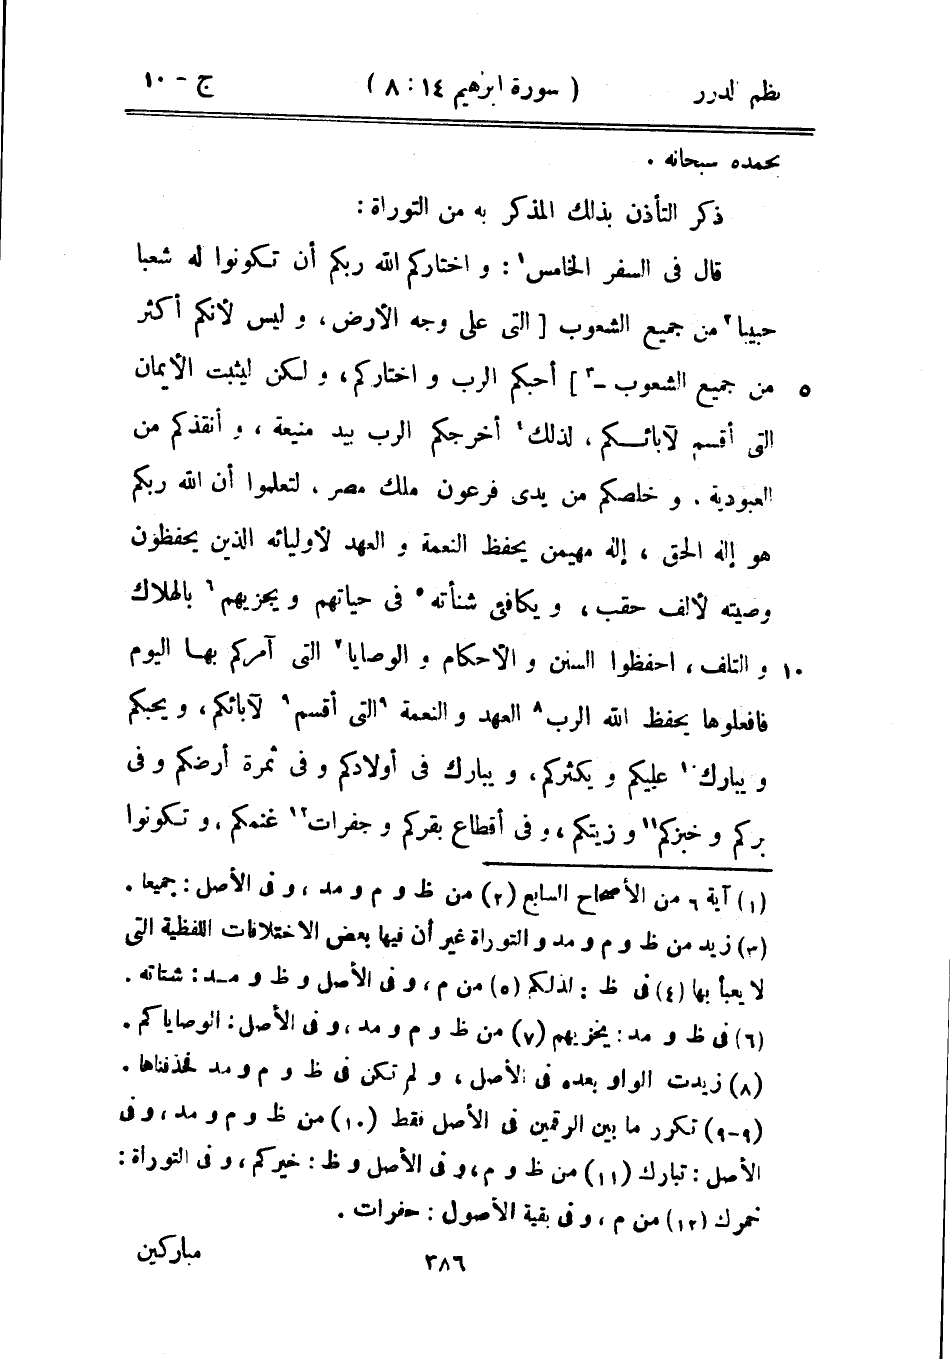 نظم الدرر ( سورة ابرٰهيم ١٤ : ٨ ) ج - ١٠
بحمده سبحانه .
ذكر التأذن بذلك المذكر به من التوراة :
قال فى السفر الخامس١ : و اختاركم الله ربكم أن تكونوا له شعبا
حبيبا٢ من جميع الشعوب [ التى على وجه الأرض ، و ليس لأنكم أكثر
٥ من جميع الشعوب -٣ ] أحبكم الرب و اختاركم ، و لكن ليثبت الأيمان
التى أقسم لآبائكم ، لذلك٤ أخرجكم الرب بيد منيعة ، و أنقذكم من
العبودية . و خلصكم من يدى فرعون ملك مصر . لتعلموا أن الله ربكم
هو إله الحق ، إله مهيمن يحفظ النعمة و العهد لأوليائه الذين يحفظون
وصيته لألف حقب ، و يكافئ شنأته٥ فى حياتهم و يجزيهم٦ بالهلاك
١٠ و التلف ، احفظوا السنن و الأحكام و الوصايا٧ التى آمركم بها اليوم
فافعلوها يحفظ الله الرب٨ العهد و النعمة ٩التى أقسم٩ لآبائكم ، و يحبكم
و يبارك١٠ عليكم و يكثركم ، و يبارك فى أولادكم و فى ثمرة أرضكم و فى
بركم و خبزكم١١ و زيتكم ، و فى أقطاع بقركم و جفرات١٢ غنمكم . و تكونوا
(١) آية ٦ من الأصحاح السابع (٢) من ظ و م و مد ، و فى الأصل : جميعا .
(٣) زيد من ظ و م و مد و التوراة غير أن فيها بعض الاختلافات اللفظية التى
لا يعبأ بها (٤) فى ظ : لذلكم (٥) من م ، و فى الأصل و ظ و مد : شتاته .
(٦) فى ظ و مد : يخزيهم (٧) من ظ و م و مد ، و فى الأصل : الوصاياكم .
(٨) زيدت الواو بعده فى الأصل ، و لم تكن فى ظ و م و مد فحذفناها .
(٩-٩) تكرر ما بين الرقمين فى الأصل فقط (١٠) من ظ و م و مد ، و فى
الأصل : تبارك (١١) من ظ و م ، و فى الأصل و ظ : خيركم ، و فى التوراة :
خمرك (١٢) من م ، و فى بقية الأصول : حفرات .
٣٨٦ مباركين